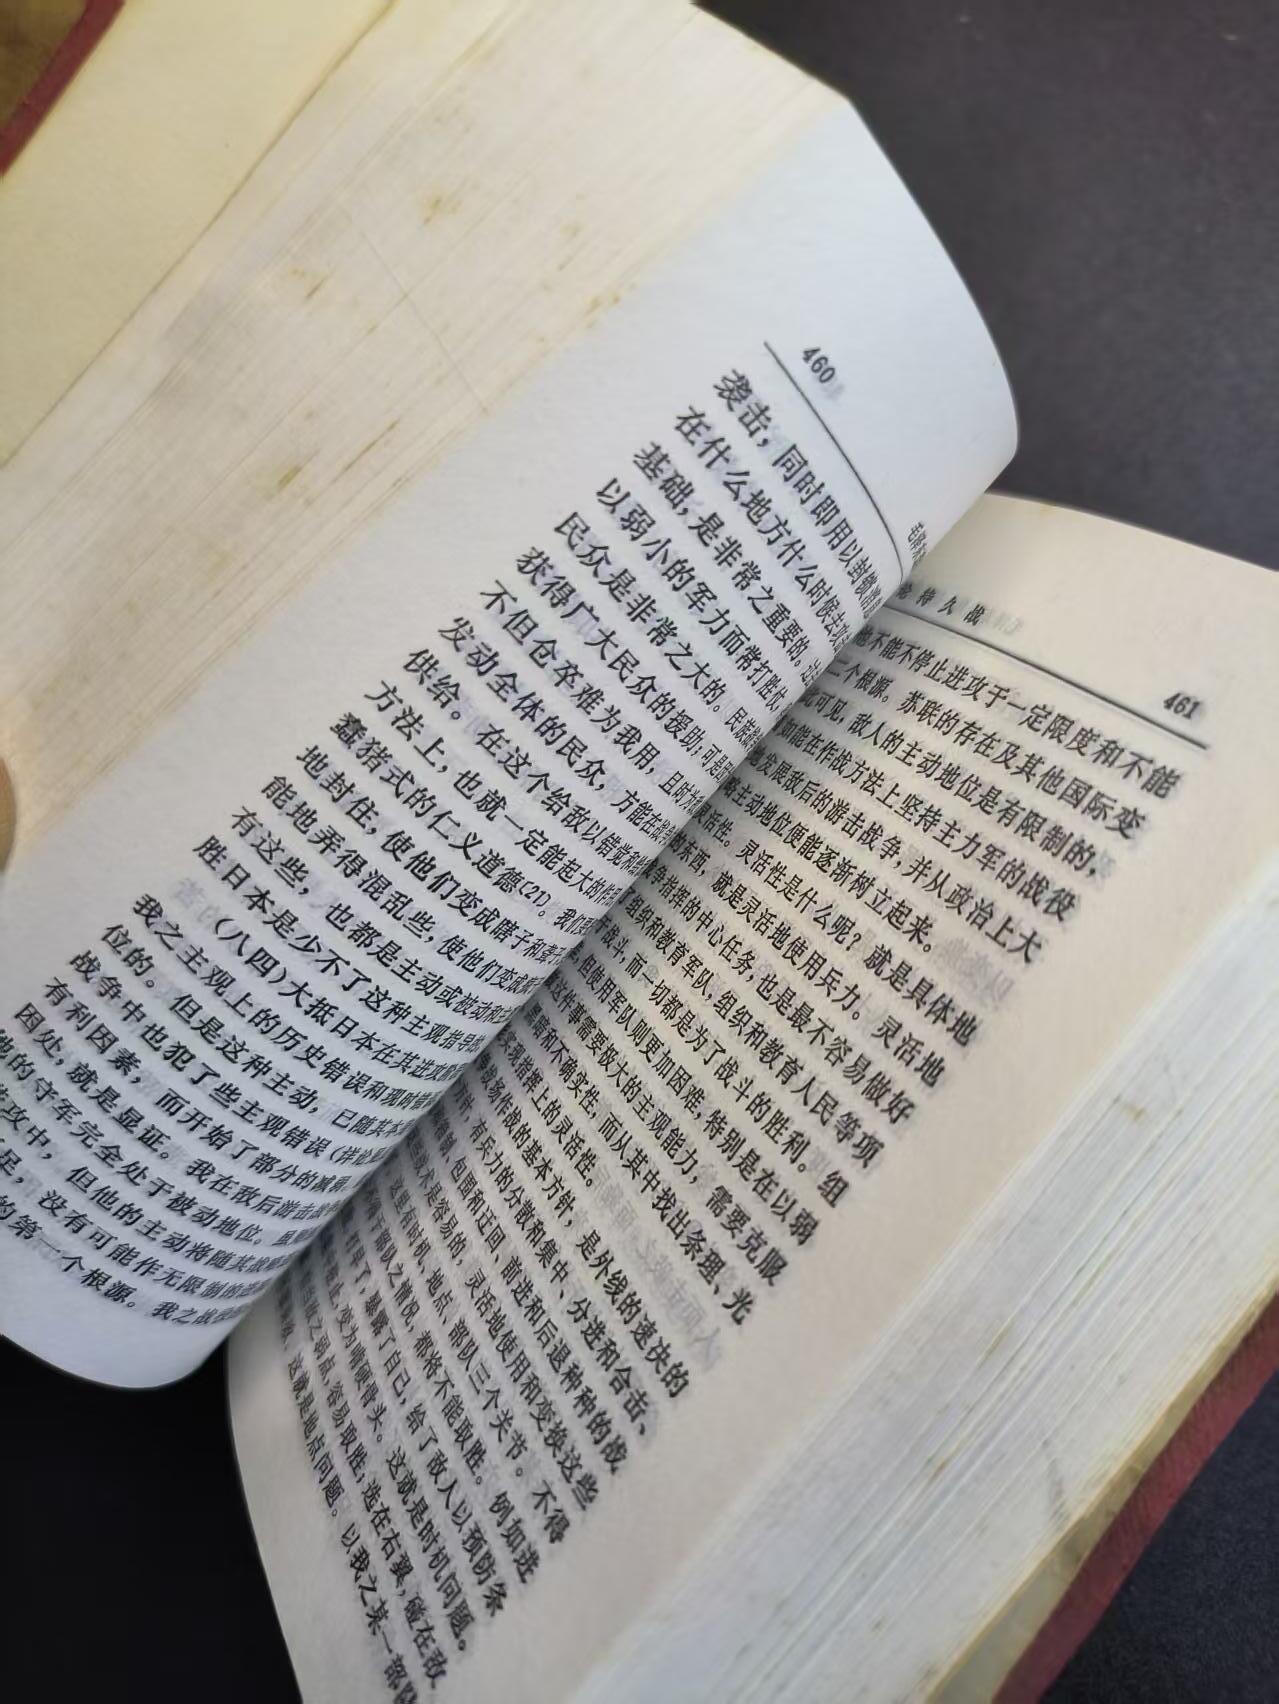 460
袭击，同时即用以封锁消
在什么地方什么时候去攻
基础，是非常之重要的。
以弱小的军力而常打胜仗
民众是非常之大的。民族
获得广大民众的援助；可是
不但仓卒难为我用，且时为
发动全体的民众，方能在战争
供给。在这个给敌以错觉和
方法上，也就一定能起大的作用
蠢猪式的仁义道德〔21〕。我们
地封住，使他们变成瞎子和聋子
能地弄得混乱些，使他们变成
有这些，也都是主动或被动和
胜日本是少不了这种主观指导的
（八四）大抵日本在其进攻阶
我之主观上的历史错误和现时错
位的。但是这种主动，已随其本
战争中也犯了些主观错误（详论
有利因素，而开始了部分的减弱
因处，就是显证。我在敌后游击战
他的守军完全处于被动地位。
进攻中，但他的主动将随其战略
足，没有可能作无限制的进
的第一个根源。我之战役
论持久战
461
他不能不停止进攻于一定限度和不能
二个根源。苏联的存在及其他国际变
此可见，敌人的主动地位是有限制的，
如能在作战方法上坚持主力军的战役
地发展敌后的游击战争，并从政治上大
略主动地位便能逐渐树立起来。
灵活性。灵活性是什么呢？就是具体地
的东西，就是灵活地使用兵力。灵活地
战争指挥的中心任务，也是最不容易做好
组织和教育军队，组织和教育人民等项
于战斗，而一切都是为了战斗的胜利。组
，但使用军队则更加困难，特别是在以弱
这件事需要极大的主观能力，需要克服
黑暗和不确实性，而从其中找出条理、光
实现指挥上的灵活性。
战场作战的基本方针，是外线的速决的
针，有兵力的分散和集中、分进和合击、
钳制、包围和迂回、前进和后退种种的战
些战术是容易的，灵活地使用和变换这些
这里有时机、地点、部队三个关节。不得
部队之情况，都将不能取胜。例如进
打早了，暴露了自己，给了敌人以预防条
驻止，变为啃硬骨头。这就是时机问题。
当敌之弱点，容易取胜；选在右翼，碰在敌
效。这就是地点问题。以我之某一部队